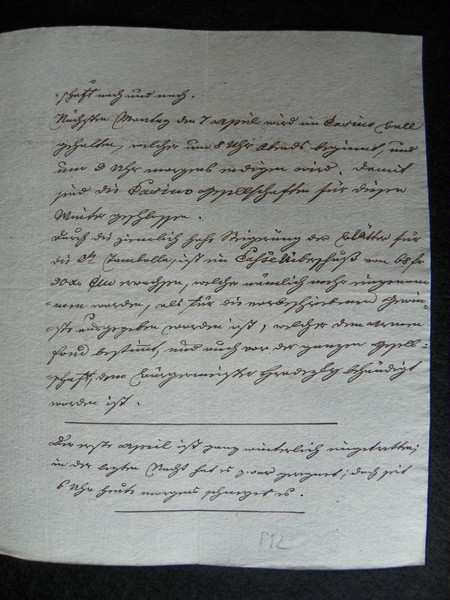 schaft nach und nach.
Nächsten Montag den 7 April wird im Casino ball
gehalten, welcher um 8 Uhr Abends beginnt, und
um 3 Uhr morgens endigen wird. Damit
sind die Casino Gesellschaften für diesen
Winter geschlossen.
Durch die ziemlich hohe Steigerung der Blätter für
die Tombolla, ist ein Überschuß von
erwachsen, welche nämlich mehr eingenom-
men worden, als für die vorbeschriebenen Gewin-
ste ausgegeben worden ist, welcher dem Armen-
fond bestimmt, und auch vor der ganzen Gesell-
schaft, dem Bürgermeister behändigt
worden ist.
Der erste April ist ganz winterlich eingetretten;
in der letzten Nacht hat es zwar geregnet; doch seit
6 Uhr heute morgens schneyet es.